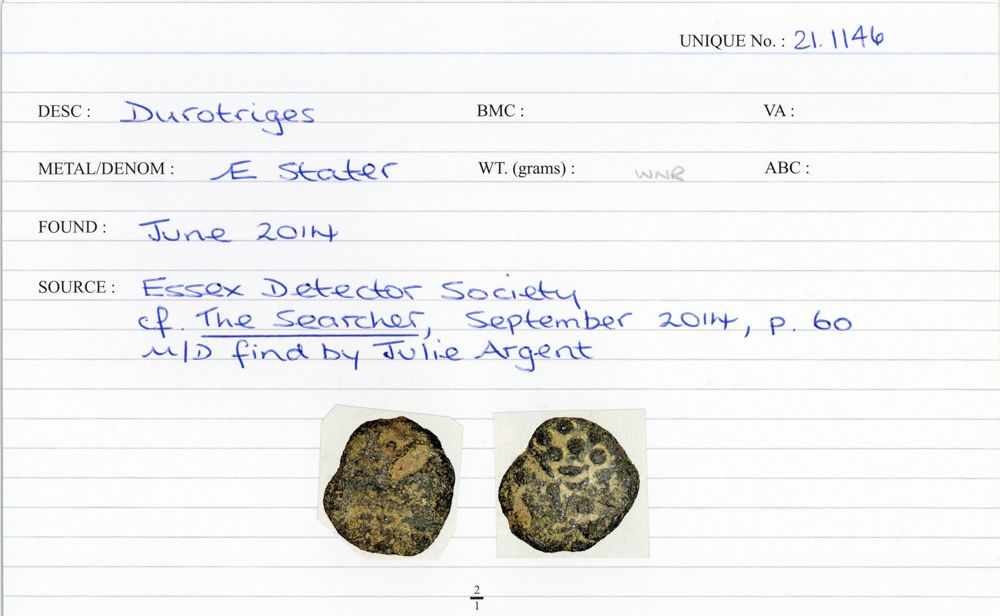 UNIQUE No. : 21.1146
DESC : Durotriges BMC : VA :
METAL/DENOM : Æ Stater WT. (grams) : WNR ABC :
FOUND : June 2014
SOURCE : Essex Detector Society
cf. The Searcher, September 2014, p. 60
M/D find by Julie Argent
2
1